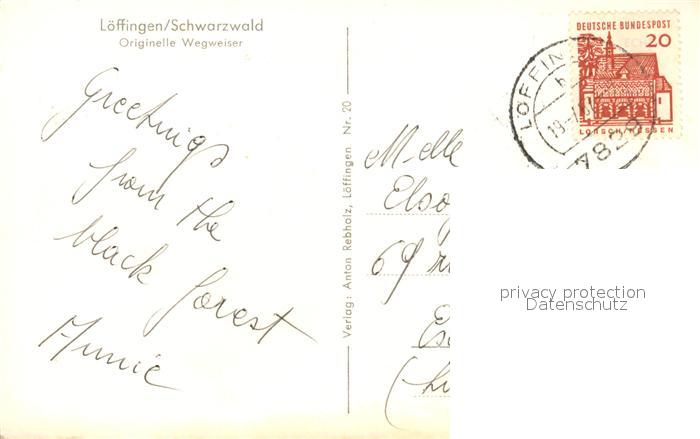 Löffingen/Schwarzwald
Originelle Wegweiser
Greetings
from the
black forest
Annie
Verlag: Anton Rebholz, Löffingen Nr. 20
Melle
69
DEUTSCHE BUNDESPOST
20
LORSCH/HESSEN
7829
privacy protection
Datenschutz